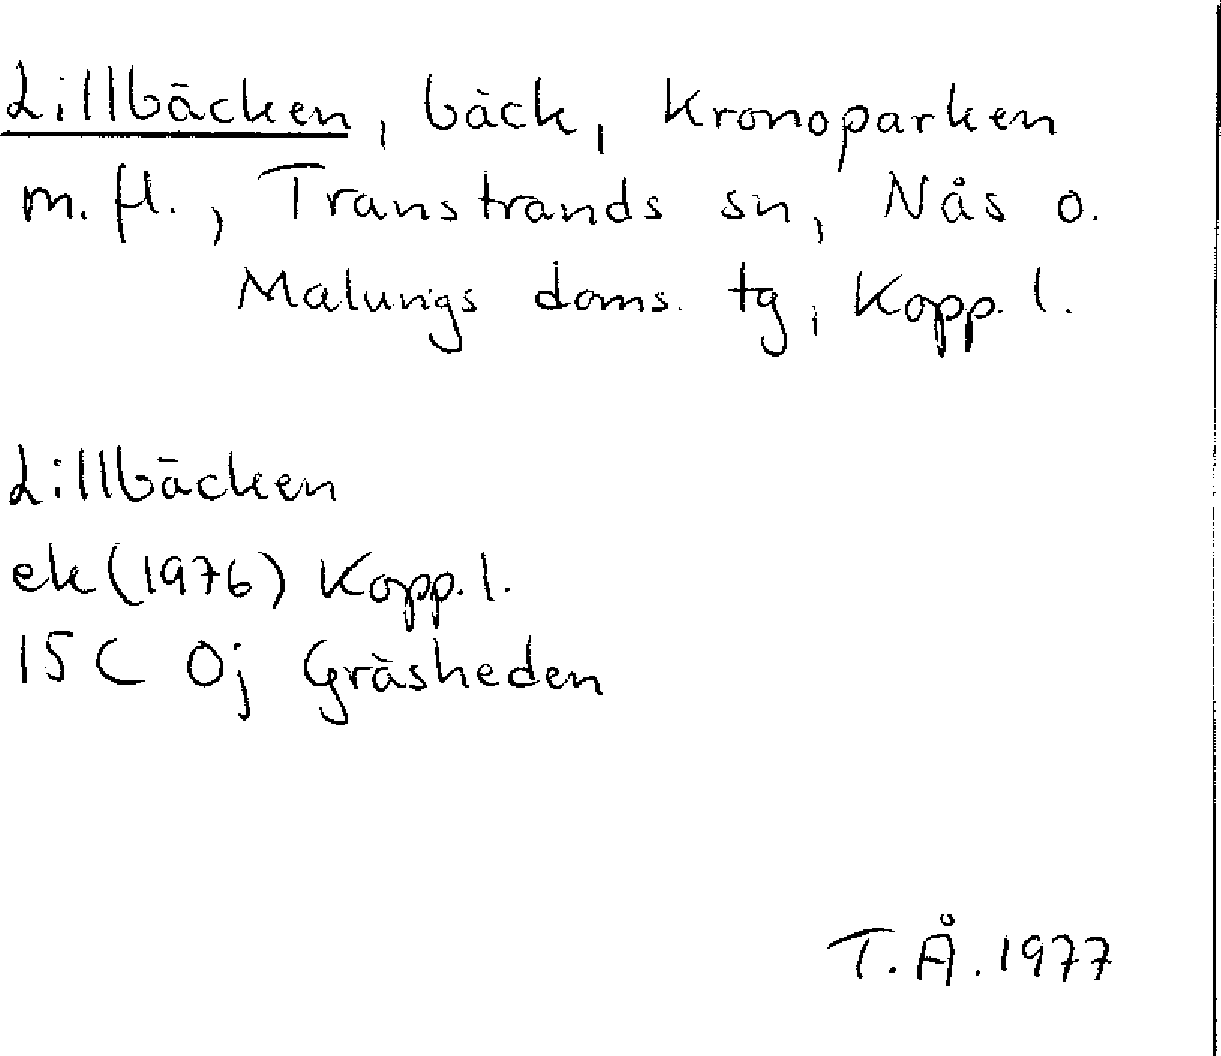 Lillbäcken, bäck, Kronoparken
m. fl., Transtrands sn, Nås o.
Malungs doms. tg, Kopp. l.
Lillbäcken
ek (1976) Kopp. l.
15 C 0j Gräsheden
T. Å. 1977